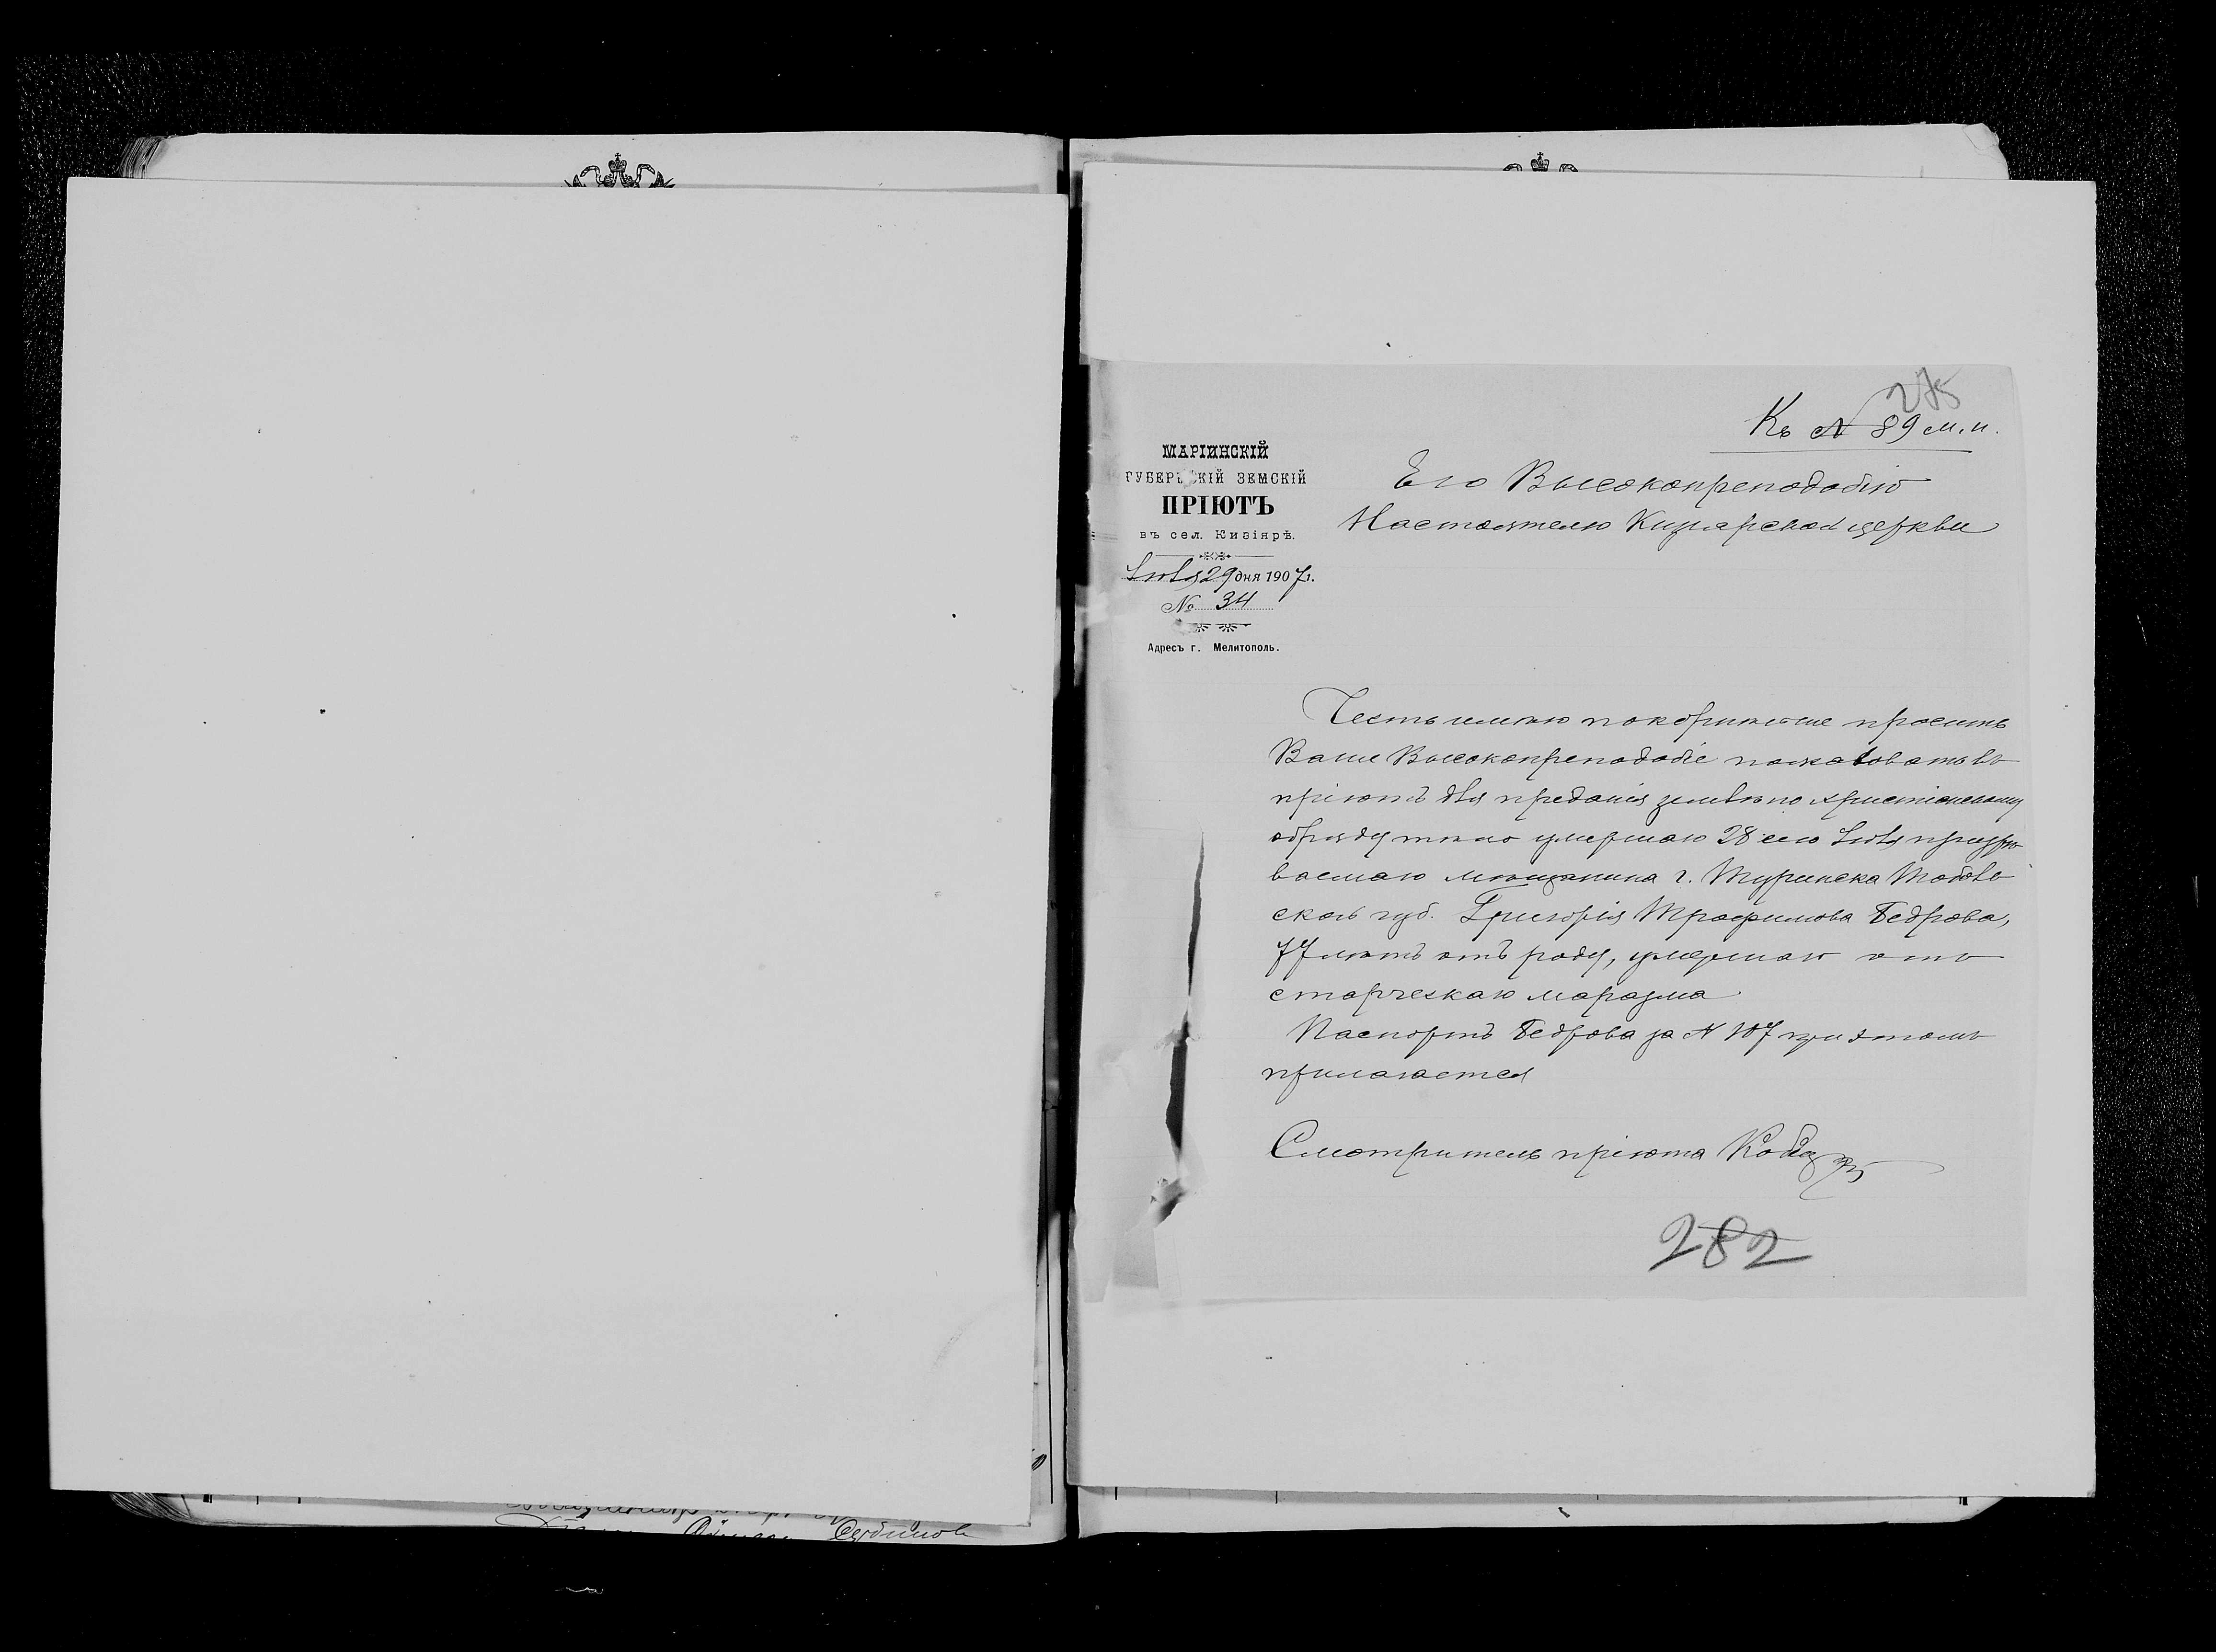 275
Къ № 89 м. п.
МАРІИНСКІЙ
ГУБЕР КІЙ ЗЕМСКІЙ
ПРІЮТЪ
въ сел. Кизіярѣ.
Іюля 29 дня 1907 г.
№ 34
Адресъ г. Мелитополь.
Его Высокопреподобію
Настоятелю Кизіярской церкви
Честь имѣю покорнѣйше просить
Ваше Высокопреподобіе пожаловать въ
пріютъ для преданія землѣ по христіанскому
обряду тѣло умершаго 28 сего Іюля призрѣ-
ваемаго мѣщанина г. Туринска Тоболь
ской губ. Григорія Трофимова Бедрова,
77 лѣтъ отъ роду, умершаго отъ
старческаго маразма
Паспортъ Бедрова за № 107 при этомъ
прилагается
Смотритель пріюта
282